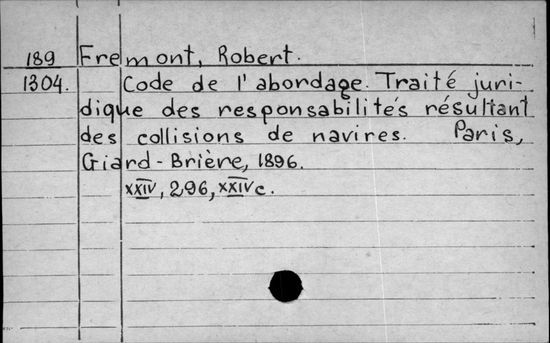 189 Fremont, Robert.
1304. Code de l'abordage. Traité juri-
dique des responsabilités résultant
des collisions de navires. Paris,
Giard-Brière, 1896.
XXIV, 296, XXIV c.